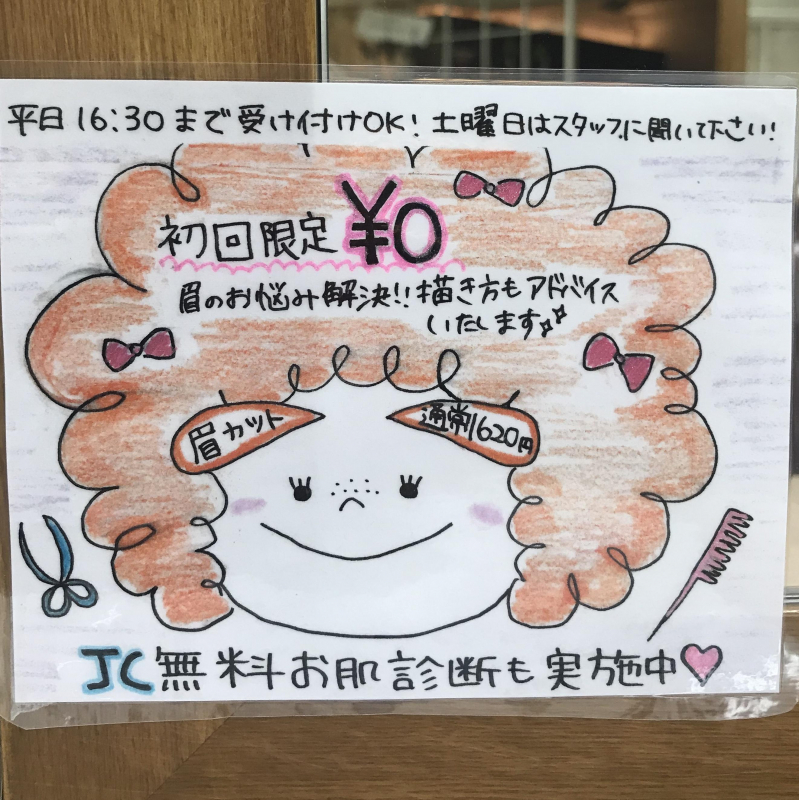 平日16:30まで受け付けOK!土曜日はスタッフに聞いて下さい!
初回限定¥0
眉のお悩み解決!!描き方もアドバイス
いたします
眉カット
通常1620円
JC無料お肌診断も実施中